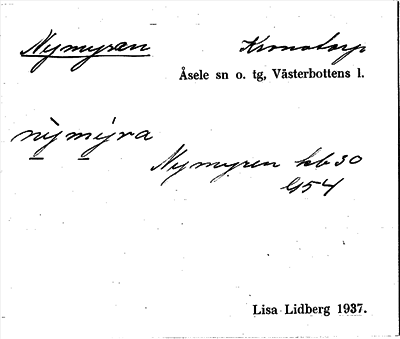 Nymyran Kronotorp
Åsele sn o. tg, Västerbottens l.
nỳmýra
Nymyren hb 30
G54
Lisa Lidberg 1937.